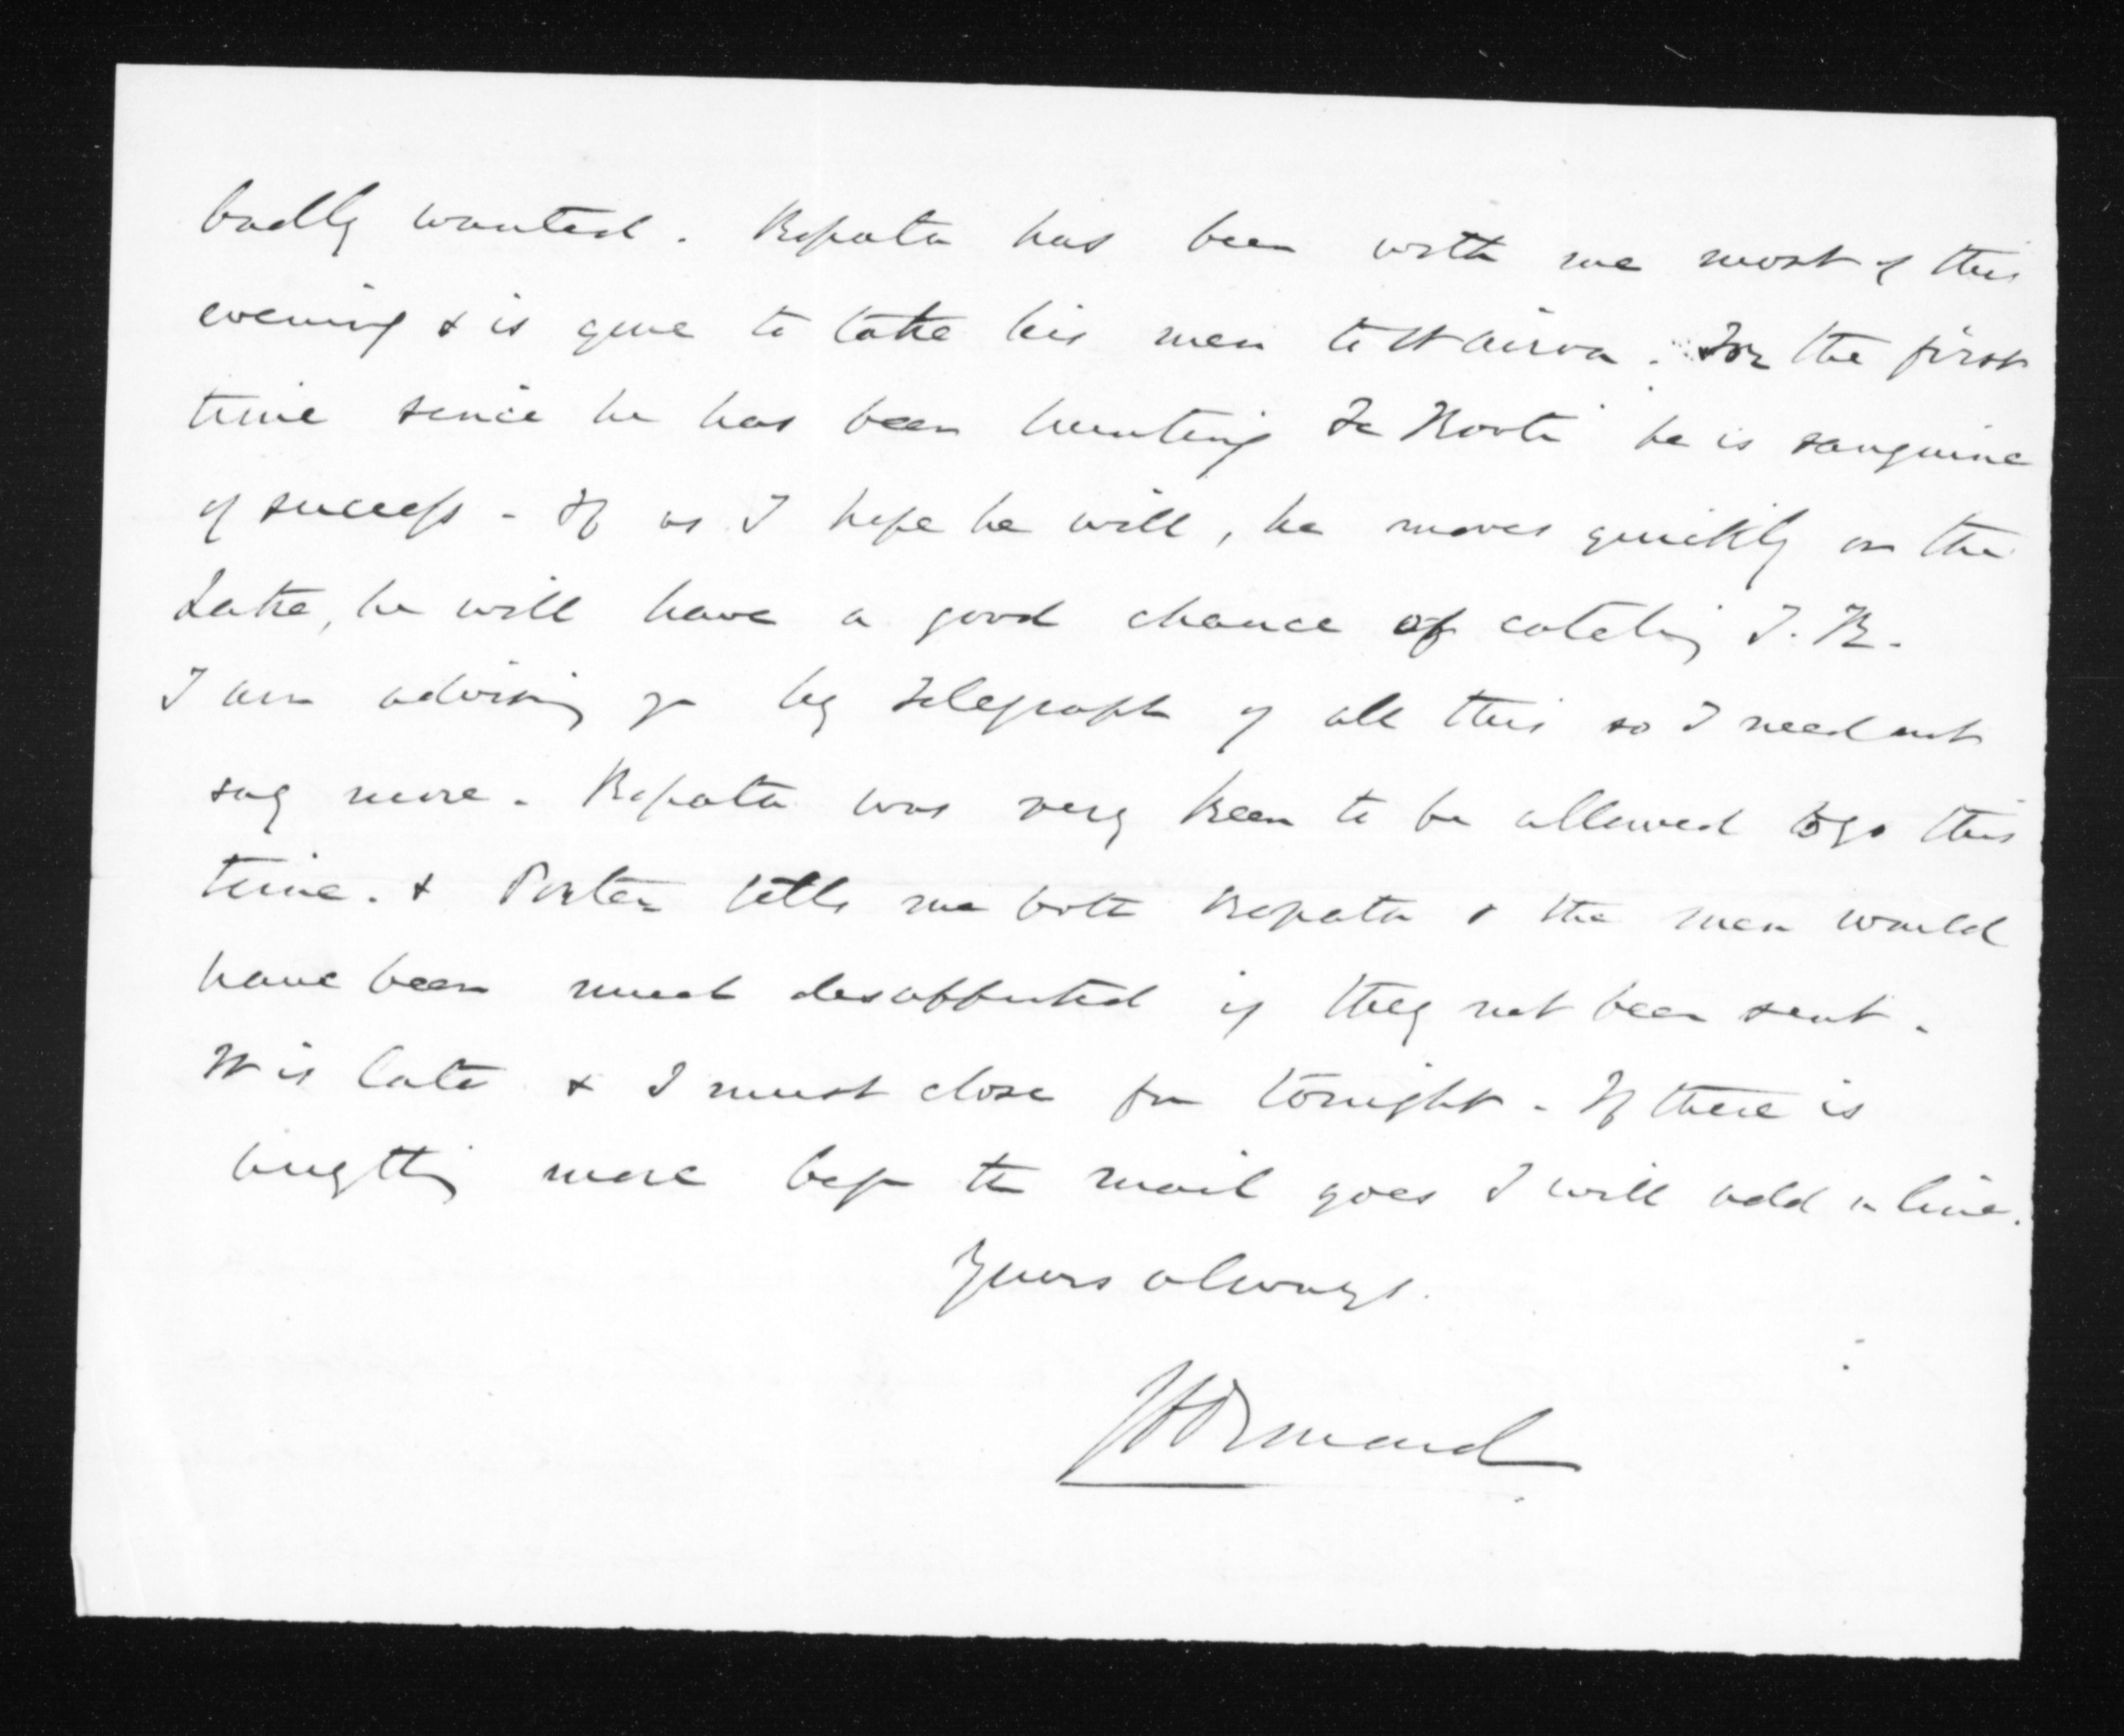 badly wanted. Ropata has been with me most of this
evening & is gone to take his men to Wairoa. For the first
time since he has been hunting Te Kooti he is sanguine
of success - If as I hope he will, he moves quickly on the
Lake, he will have a good chance of catching T.K.
I am advising you by Telegraph of all this so I need not
say more. Ropata was very keen to be allowed to go this
time. & Porter tells me both Ropata & the men would
have been much disappointed if they not been sent.
It is late & I must close for tonight. If there is
anything more before the mail goes I will add a line.
Yours always.
JD Ormond